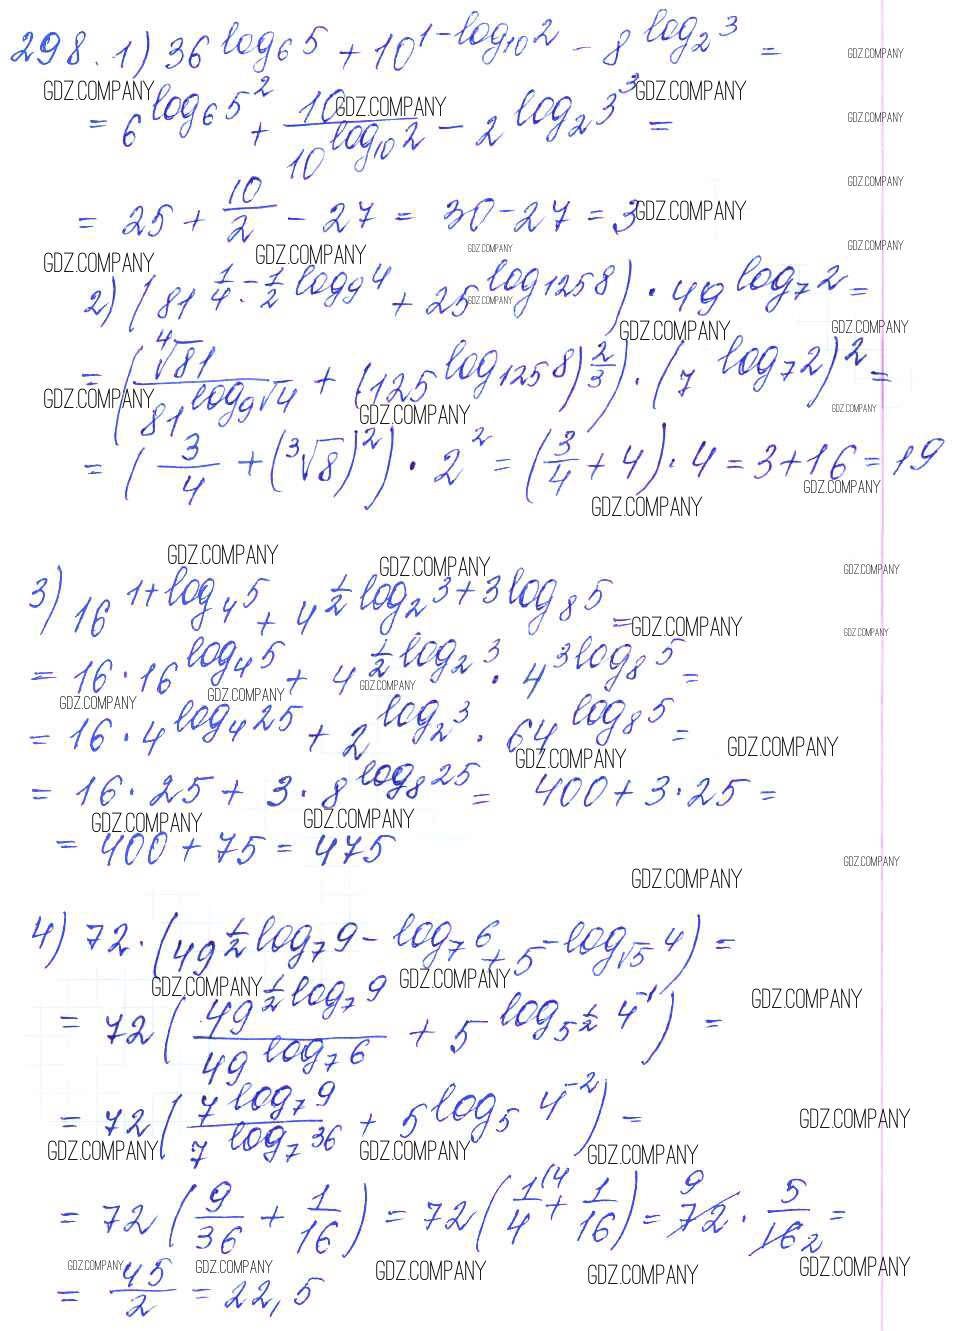 298. 1) 36^(log₆5) + 10^(1-log₁₀2) - 8^(log₂3) =
= 6^(log₆5²) + 10/10^(log₁₀2) - 2^(log₂3³) =
= 25 + 10/2 - 27 = 30 - 27 = 3
2) (81^(1/4 - 1/2 log₉4) + 25^(log₁₂₅8)) · 49^(log₇2) =
= (⁴√81/81^(log₉√4) + (125^(log₁₂₅8))^(2/3)) · (7^(log₇2))² =
= (3/4 + (³√8)²) · 2² = (3/4 + 4) · 4 = 3 + 16 = 19
3) 16^(1+log₄5) + 4^(1/2 log₂3 + 3log₈5) =
= 16 · 16^(log₄5) + 4^(1/2 log₂3) · 4^(3log₈5) =
= 16 · 4^(log₄25) + 2^(log₂3) · 64^(log₈5) =
= 16 · 25 + 3 · 8^(log₈25) = 400 + 3 · 25 =
= 400 + 75 = 475
4) 72 · (49^(1/2 log₇9 - log₇6) + 5^(-log_√5 4)) =
= 72 (49^(1/2 log₇9)/49^(log₇6) + 5^(log_(5^(1/2)) 4⁻¹)) =
= 72 (7^(log₇9)/7^(log₇36) + 5^(log₅4⁻²)) =
= 72 (9/36 + 1/16) = 72 (1/4 (4 + 1/16) = 72 9 · 5/16 2 =
= 45/2 = 22,5
GDZ.COMPANY